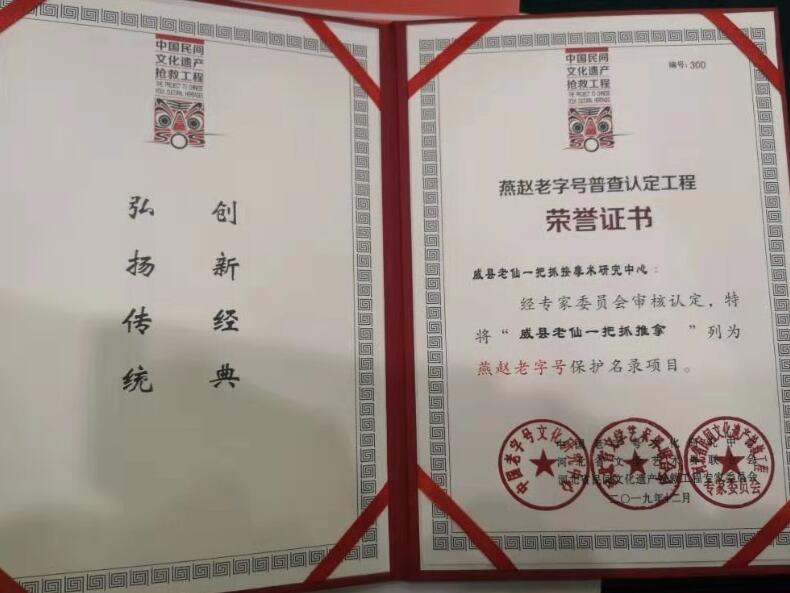 中国民间
文化遗产
抢救工程
THE PROJECT TO CHINESE
FOLK CULTURAL HERITAGES
弘扬传统
创新经典
中国民间
文化遗产
抢救工程
THE PROJECT TO CHINESE
FOLK CULTURAL HERITAGES
编号: 300
燕赵老字号普查认定工程
荣誉证书
威县老仙一把抓按摩术研究中心：
经专家委员会审核认定，特
将“威县老仙一把抓推拿”列为
燕赵老字号保护名录项目。
中国老字号文化研究中心
河北省民间文化遗产抢救工程专家委员会
二〇一九年十二月
中国老字号文化研究中心
专家委员会